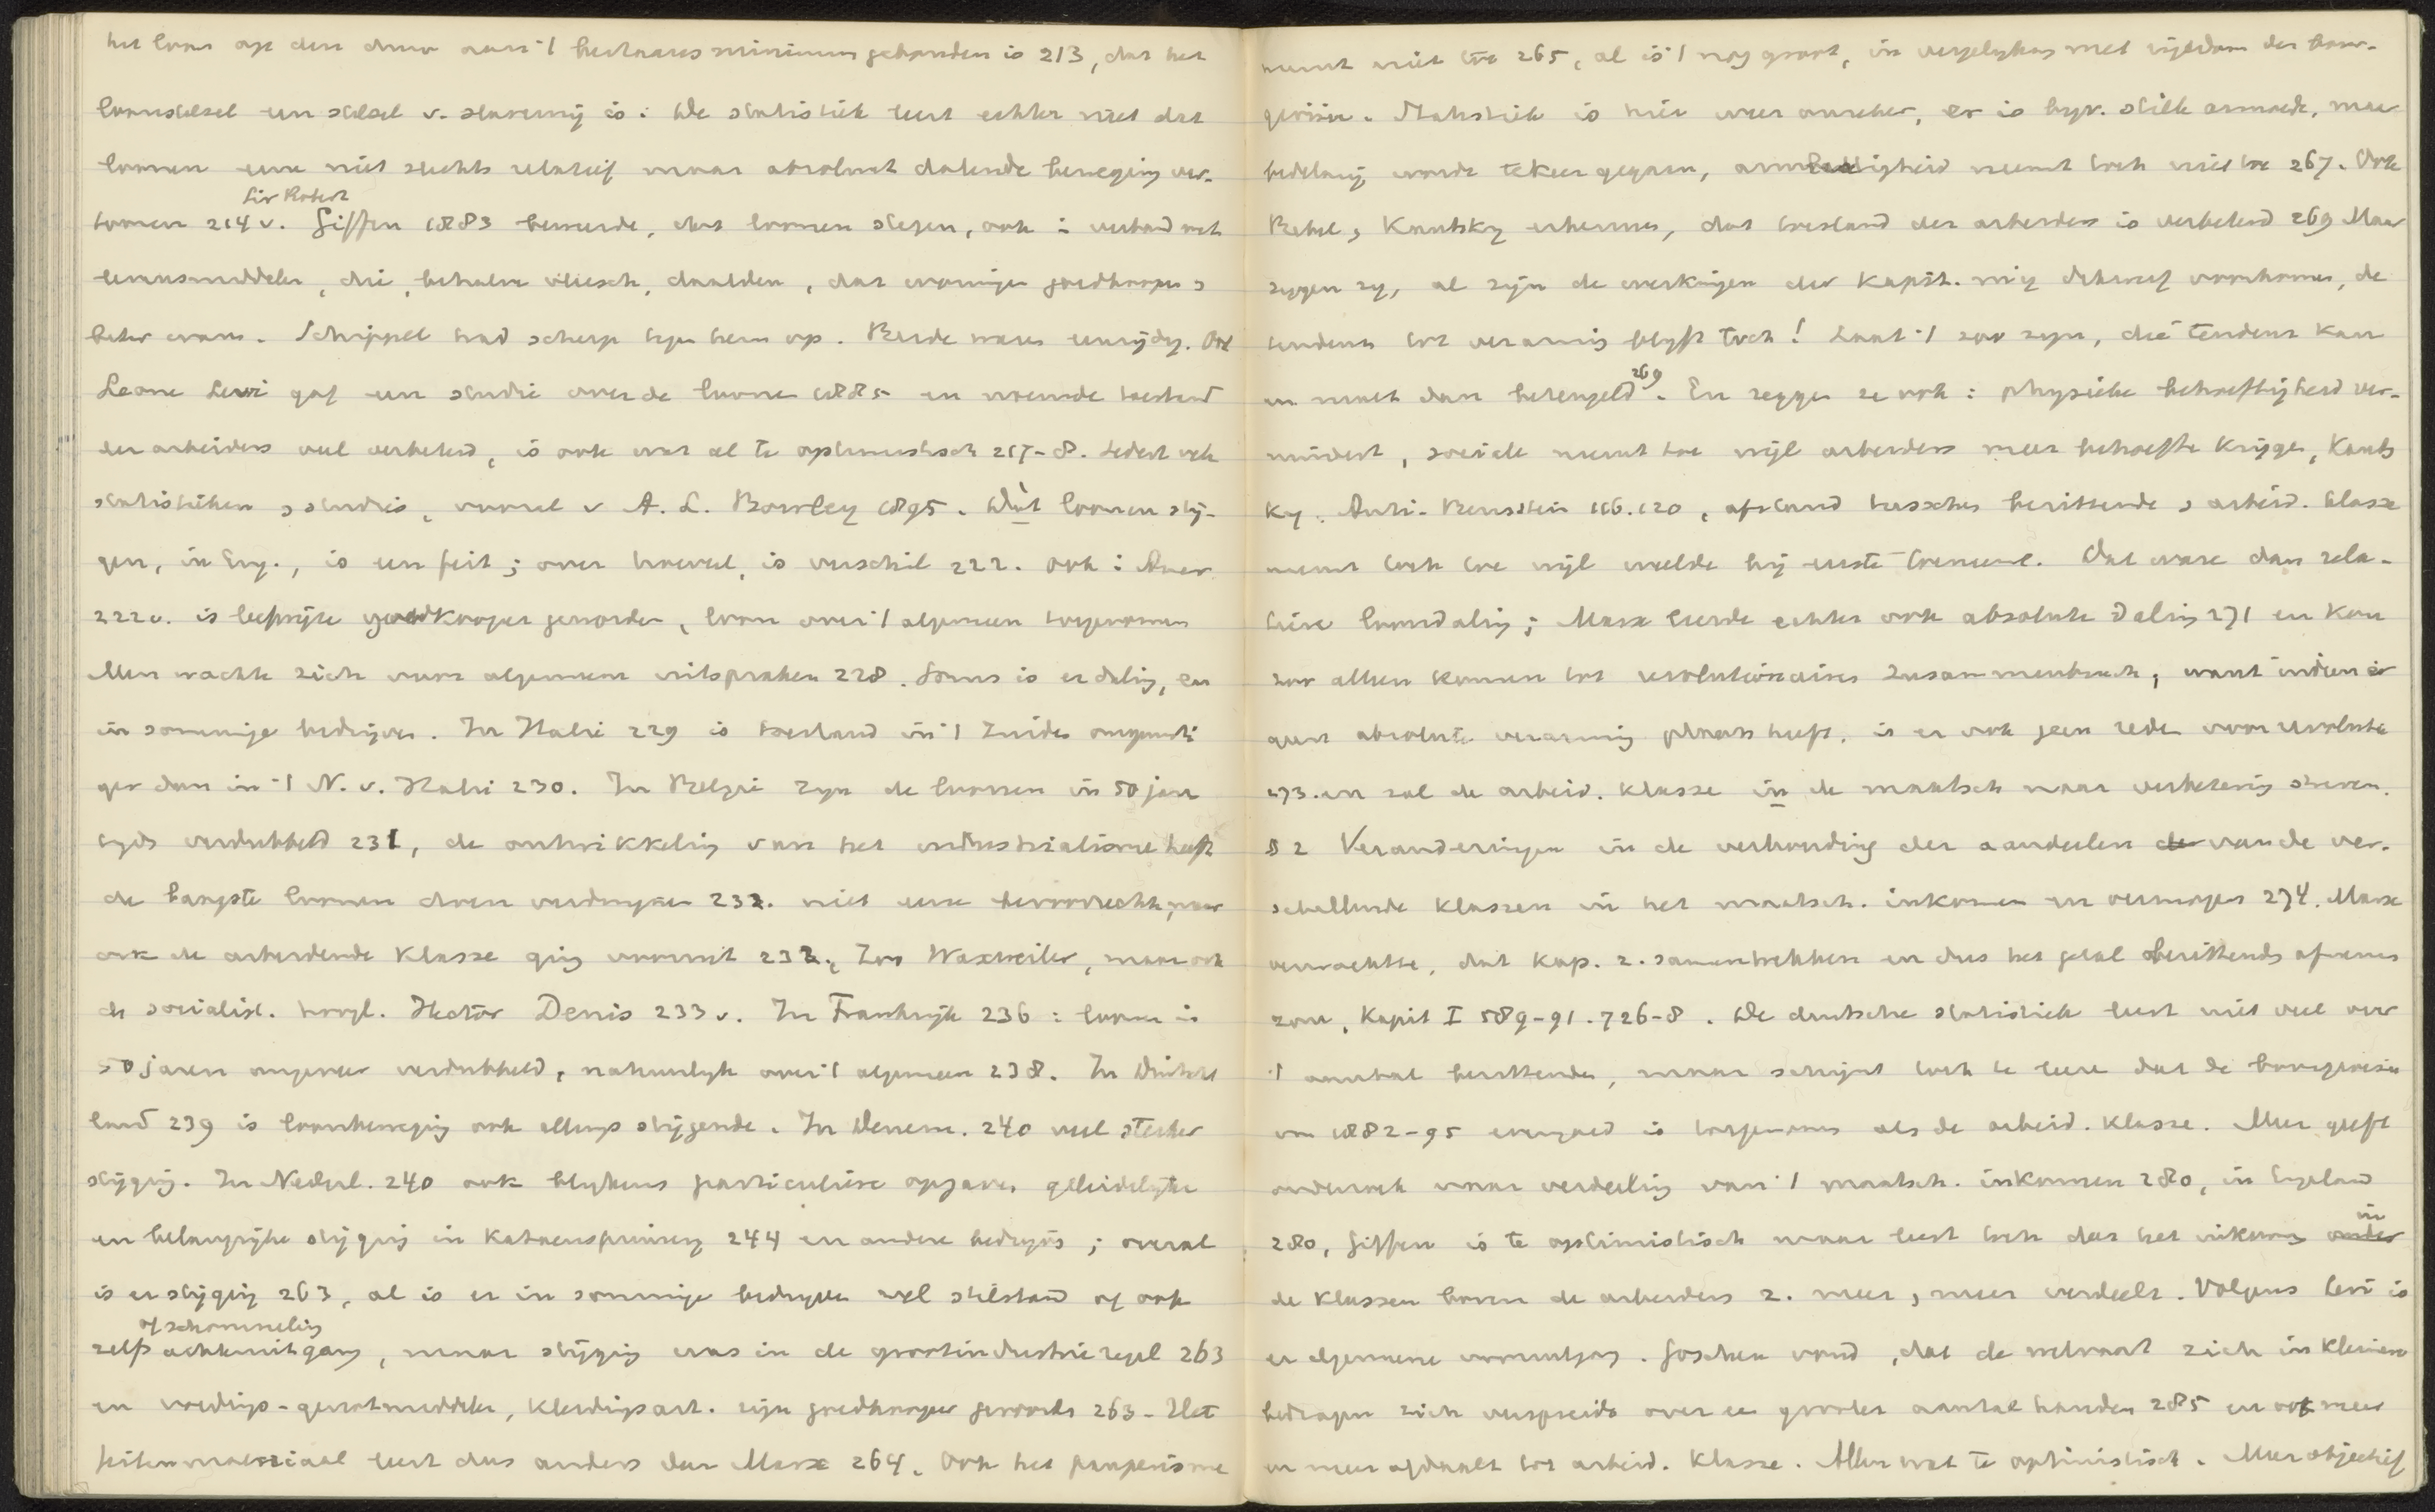 het loon op den duur aan 't bestaansminimum gebonden is 213, dat het
loonstelsel een stelsel v. slaverny is. De statistiek leert echter niet dat
loonen eene niet slechts relatief maar absoluut dalende beweging ver-
Sir Robert
toonen 214 v. Giffen 1883 beweerde, dat loonen stegen, ook i verband met
levensmiddelen, die, behalve vleesch, daalden, dat woningen goedkooper &
beter waren. Schippel trad scherp tegen hem op. Beide waren eenzydig. Ook
Leone Levi gaf een studie over de loonen 1885 en noemde toestand
der arbeiders veel verbeterd, is ook wat al te optimistisch 217-8. Sedert vele
statistieken & studies, vooral v A. L. Bowley 1895. Dàt loonen stij-
gen, in Eng., is een feit; over hoeveel, is verschil 222. Ook i Amer.
222 v. is leefwijze goedkooper geworden, loon over 't algemeen toegenomen
Men wachte zich voor algemeene uitspraken 228. Soms is er daling, en
in sommige bedrijven. In Italië 229 is toestand in 't Zuiden ongunsti
ger dan in 't N. v. Italië 230. In Belgie zyn de loonen in 50 jaar
tyds verdubbeld 231, de ontwikkeling van het industrialisme heeft
de laagste loonen doen verdwynen 232. niet eene bevoorrechte, maar
ook de arbeidende klasse ging vooruit 232. Zoo Waxweiler, maar ook
de socialist. hoogl. Hector Denis 233 v. In Frankrijk 236: loonen in
50 jaren ongeveer verdubbeld, natuurlyk over 't algemeen 238. In Duitsch
land 239 is loonbeweging ook allengs stijgende. In Denem. 240 veel sterker
stijging. In Nederl. 240 ook blykens particuliere opgaven geleidelyke
en belangrijke stijging in katoenspinnerij 244 en andere bedryven; overal
is er stijging 263, al is er in sommige bedryven wel stilstand of ook
of schommeling
zelfs achteruitgang, maar stijging was in de grootindustrie regel 263
en voedings-genotmiddelen, kledingsart. zijn goedkooper geworden 263 - Het
feitenmateriaal leert dus anders dan Marx 264. Ook het pauperisme
neemt niet toe 265, al is 't nog groot, in vergelyking met rijkdom der bour-
geoisie. Statistiek is hier weer onzeker, er is byv. stille armoede, maar
bedelarij wordt tekeer gegaan, armlastigheid neemt toch niet toe 267. Ook
Bebel & Kautsky erkennen, dat toestand der arbeiders is verbeterd 269 Maar
zeggen zy, al zijn de werkingen der kapit. mij dikwerf voorkomen, de
tendens tot verarming blyft toch! Laat 't zoo zyn, die tendenz kan
269
en moet dan beteugeld. En zeggen ze ook: physieke behoeftigheid ver-
mindert, sociale neemt toe wijl arbeiders meer behoefte krijgen, Kauts
ky. Anti-Bernstein 116.120, afstand tusschen bezittende & arbeid. klasse
neemt toch toe wijl weelde bij eerste toeneemt. Dat ware dan rela-
tieve loondaling; Marx leerde echter ook absolute daling 271 en kon
zoo alleen komen tot revolutionairen Zusammenbruch, want indien er
geen absolute verarming plaats heeft, is er ook geen reden voor revolutie
273. en zal de arbeid. klasse in de maatsch naar verbetering streven.
§ 2 Veranderingen in de verhouding der aandeelen der van de ver-
schillende klassen in het maatsch. inkomen en vermogen 274. Marx
verwachtte, dat kap. z. samentrekken en dus het getal bezittends afnemen
zou, Kapit I 589-91. 726-8. De duitsche statistiek leert niet veel over
't aantal bezittenden, maar schijnt toch te leeren dat de bourgeoisie
van 1882-95 evengoed is toegenomen als de arbeid. klasse. Meer geeft
onderzoek naar verdeeling van 't maatsch. inkomen 280, in Engeland
in
280, Giffen is te optimistisch maar leert toch dat het inkomen onder
de klassen boven de arbeiders z. meer & meer verdeelt. Volgens Levi is
er algemeene vooruitgang. Goschen vond, dat de welvaart zich in kleinere
bedragen zich verspreidt over een grooter aantal handen 285 en ook meer
en meer afdaalt tot arbeid. klasse. Allen wat te optimistisch. Meer objectief